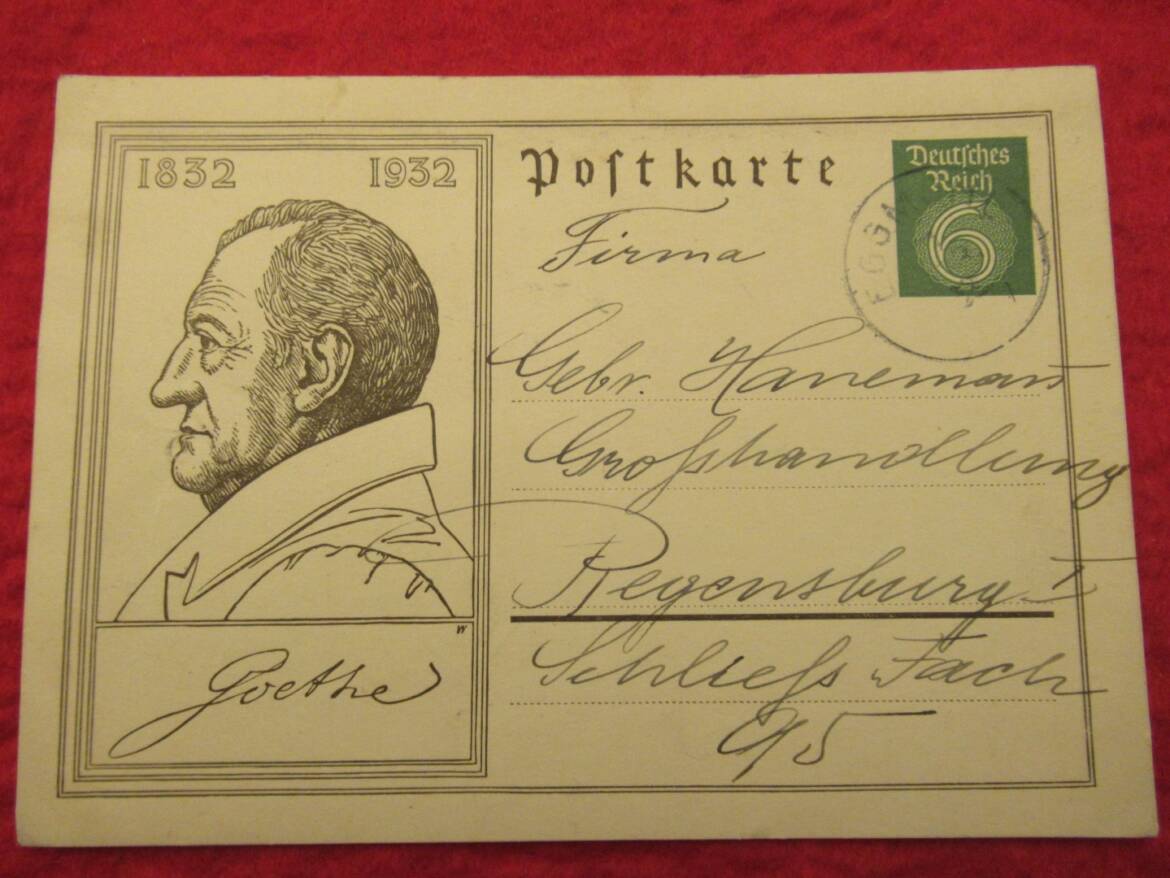 1832 1932
Poſtkarte
Deutſches
Reich
6
Firma
Gebr. Hanemann
Großhandlung
Regensburg I
Schließ Fach
95
W
Goethe